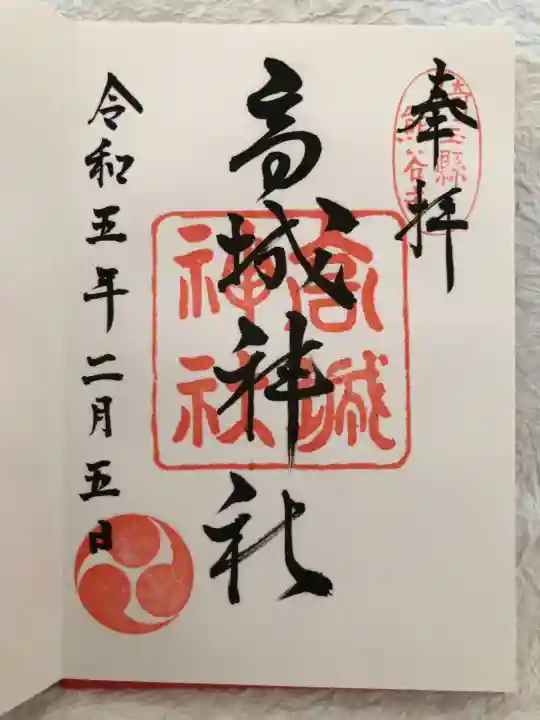 奉拝
埼玉縣
熊谷市
高城神社
高城
神社
令和五年二月五日